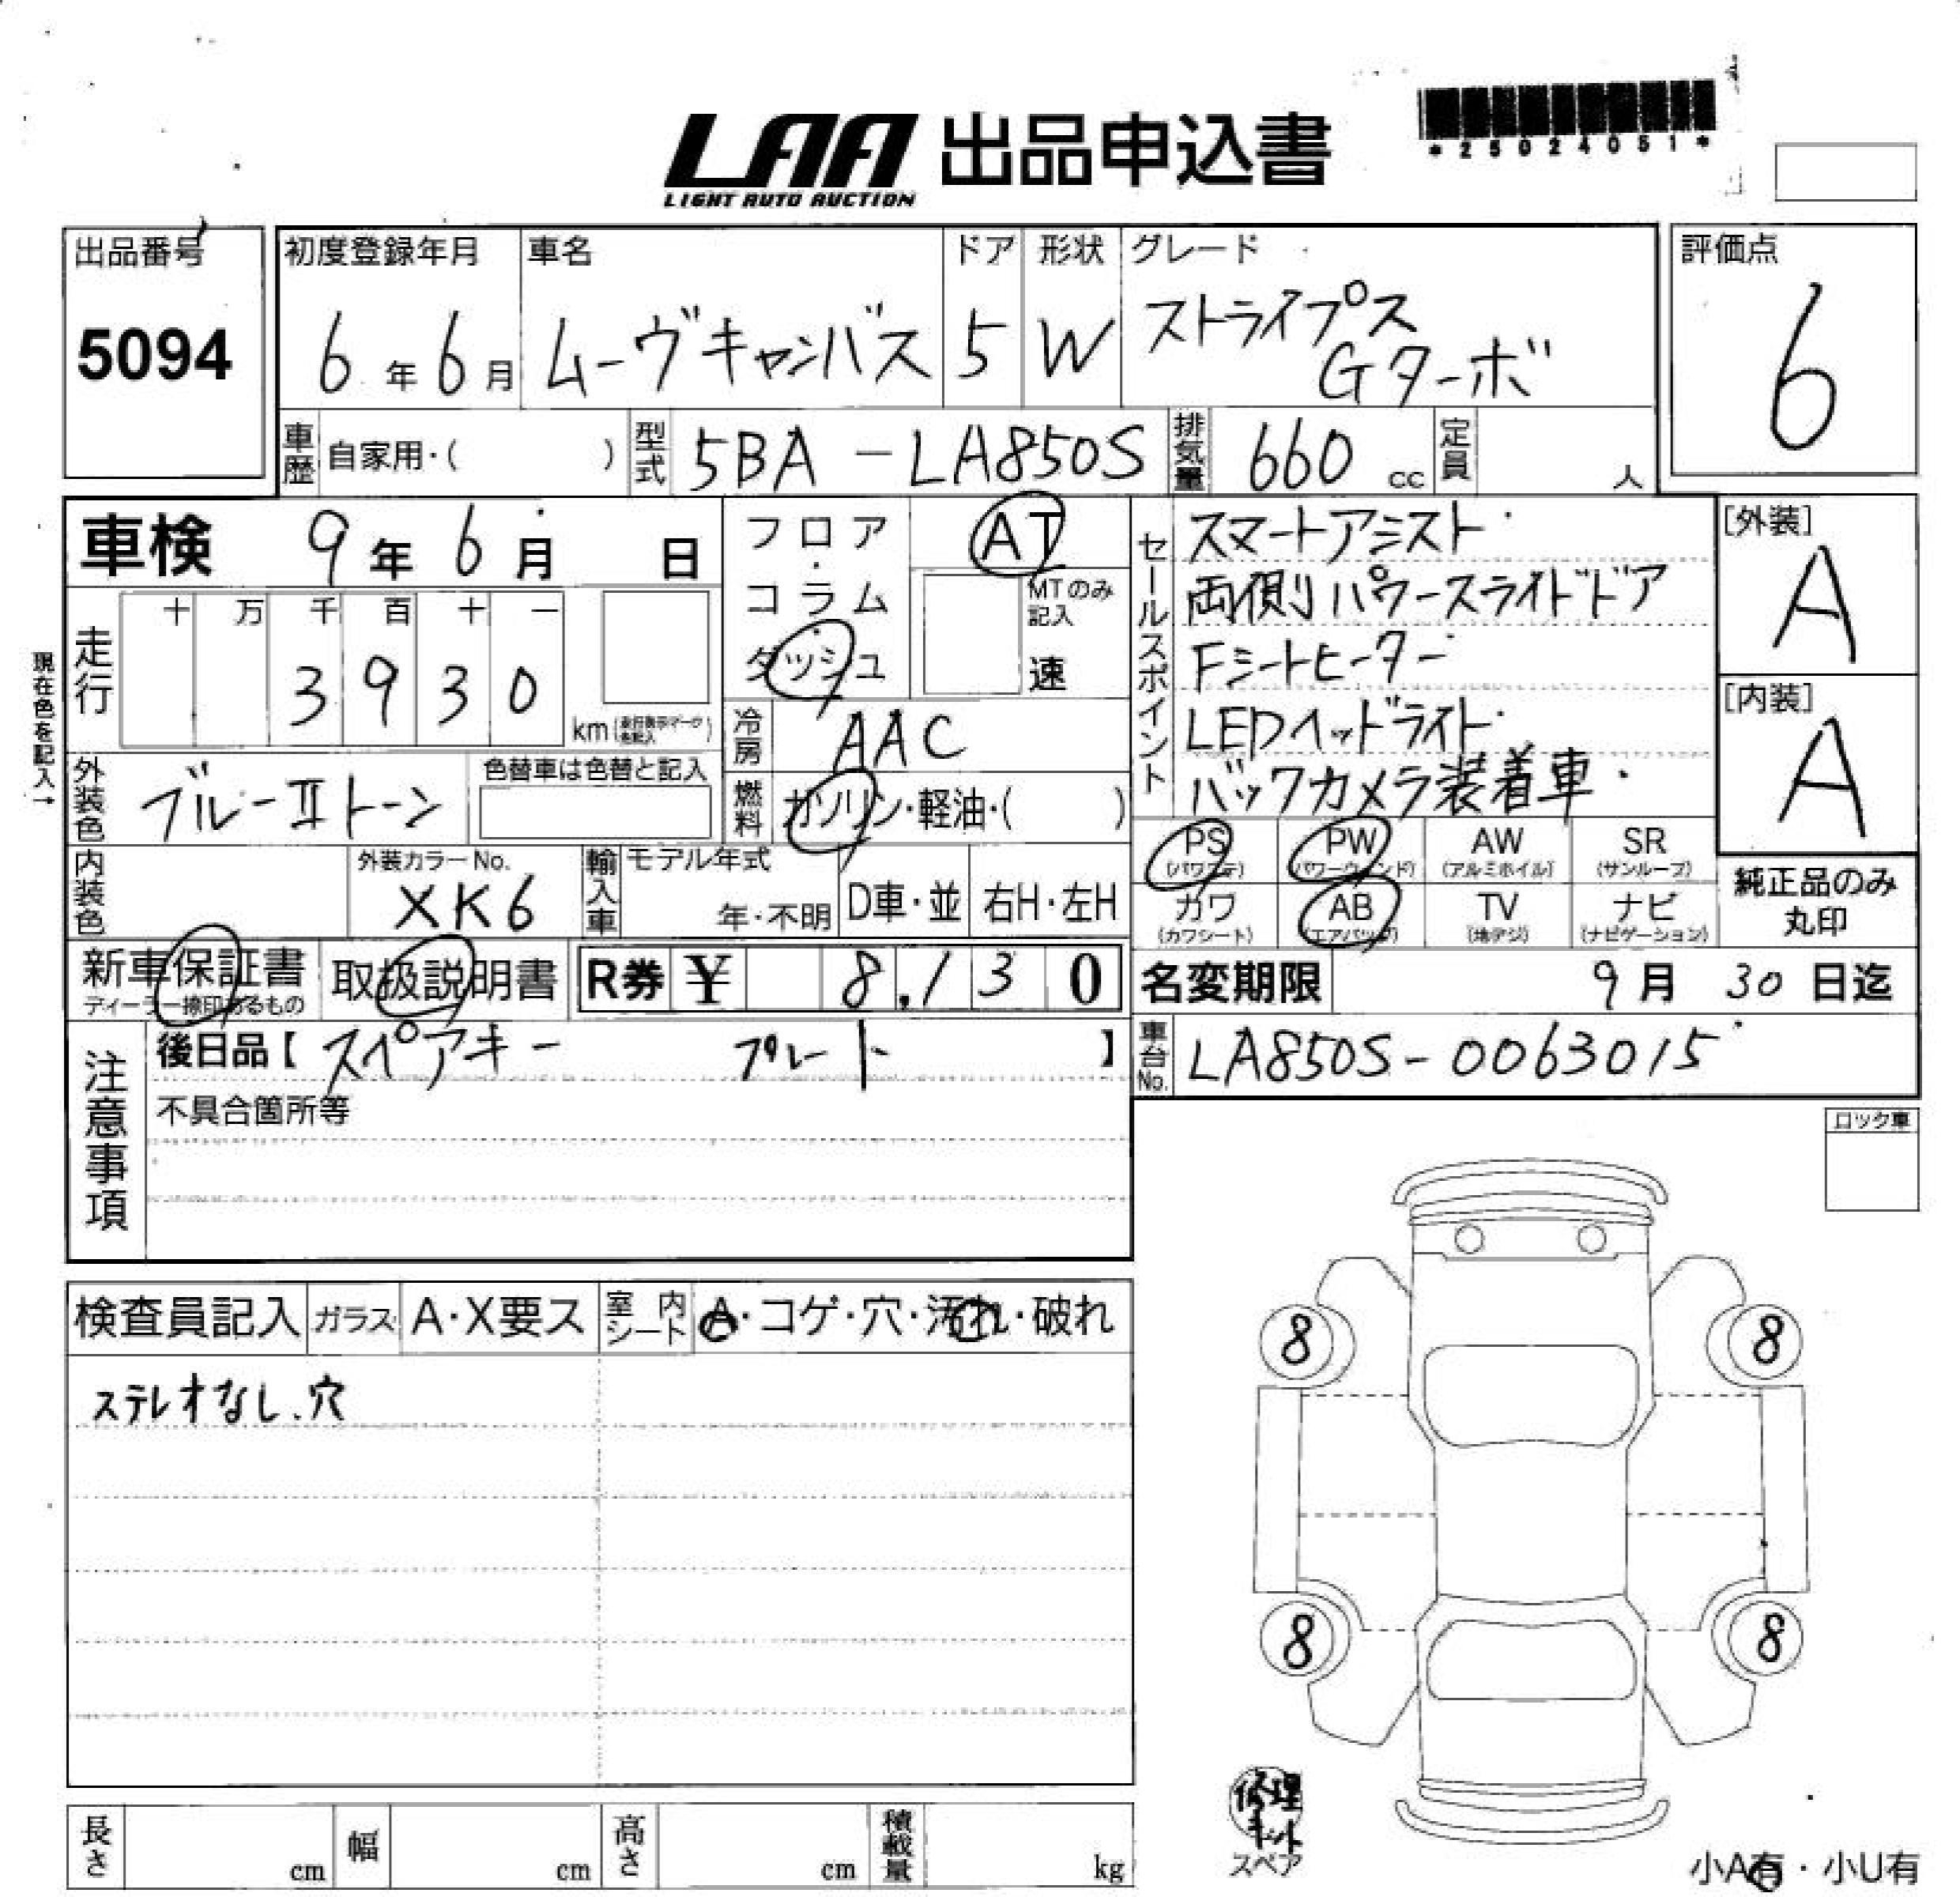 LAA 出品申込書
LIGHT AUTO AUCTION
*25024051*
出品番号
5094
初度登録年月
6年6月
車名
ムーヴキャンバス
ドア
5
形状
W
グレード
ストライプス
Gターボ
評価点
6
車歴
自家用・( )
型式
5BA-LA850S
排気量
660 cc
定員
人
車検 9年6月 日
フロア・コラム・ダッシュ
AT
MTのみ記入
速
セールスポイント
スマートアシスト
両側パワースライドドア
Fシートヒーター
LEDヘッドライト
バックカメラ装着車
[外装]
A
[内装]
A
現在色を記入→
走行
十 万 千 百 十 一
3 9 3 0
km
冷房
AAC
外装色
ブルーⅡトーン
色替車は色替と記入
燃料
ガソリン・軽油・( )
PS (パワステ)
PW (パワーウィンド)
AW (アルミホイル)
SR (サンルーフ)
カワ (カワシート)
AB (エアバッグ)
TV (地デジ)
ナビ (ナビゲーション)
純正品のみ
丸印
内装色
外装カラーNo.
XK6
輸入車
モデル年式
年・不明
D車・並
右H・左H
新車保証書
ディーラー捺印あるもの
取扱説明書
R券 ¥ 8,130
名変期限 9月30日迄
注意事項
後日品【 スペアキー プレート 】
車台No.
LA850S-0063015
不具合箇所等
ロック車
検査員記入
ガラス
A・X要ス
室内シート
A・コゲ・穴・汚れ・破れ
ステレオなし、穴
8
8
8
8
修理キット
スペア
小A有・小U有
長さ cm
幅 cm
高さ cm
積載量 kg